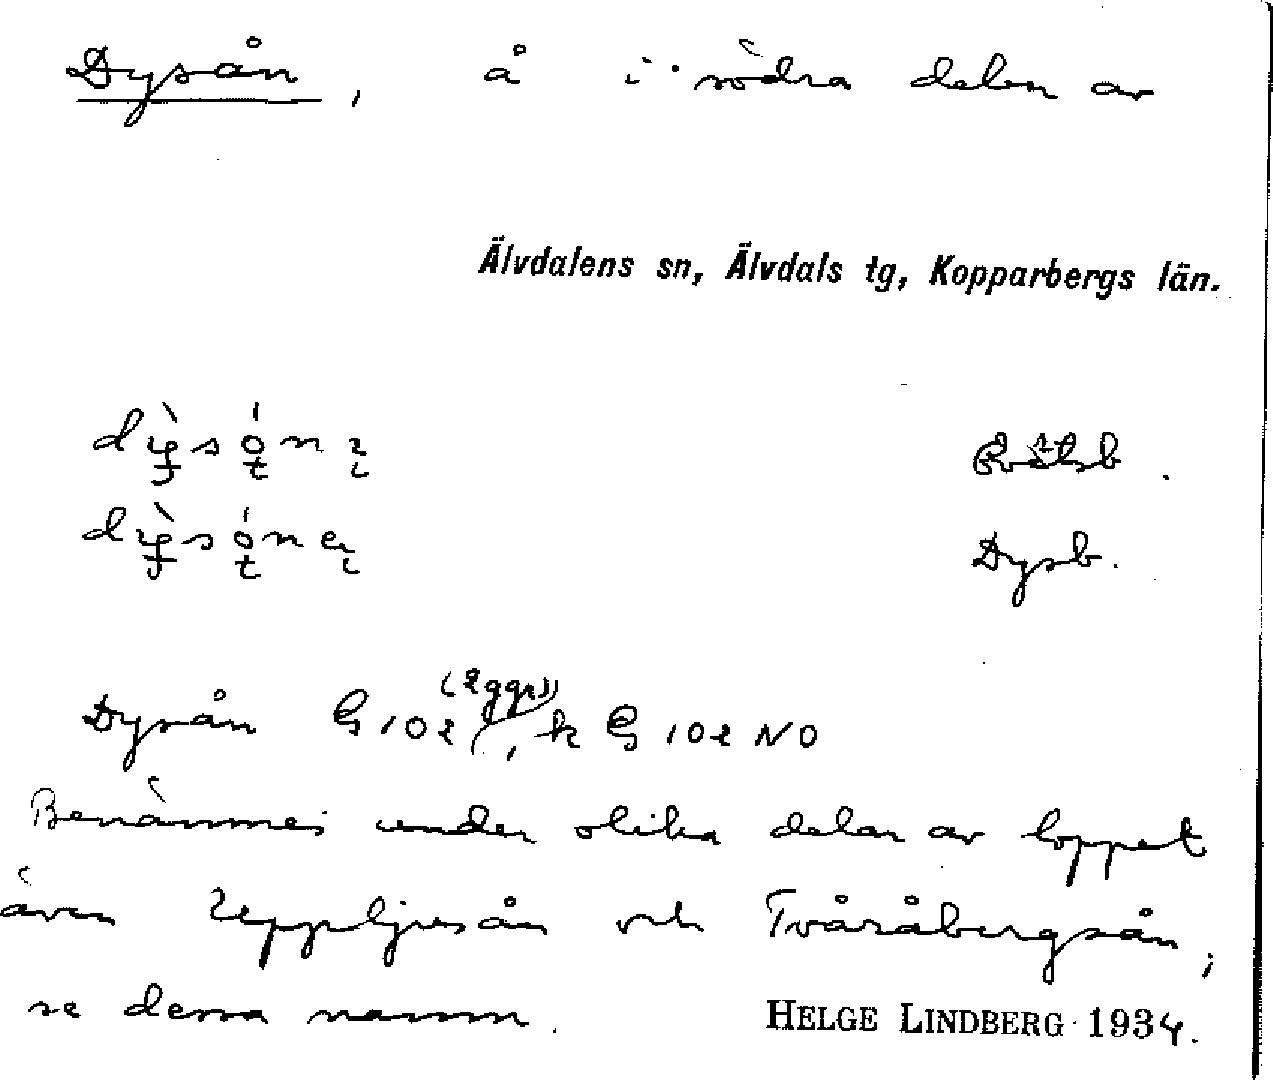 Dysån, å i södra delen av
Älvdalens sn, Älvdals tg, Kopparbergs län.
Rötsb.
Dysb.
(2 ggr)
Dysån G 102, k G 102 NO
Benämnes under olika delar av loppet
även och Tvåråbergsån;
se dessa namn. HELGE LINDBERG 1934.